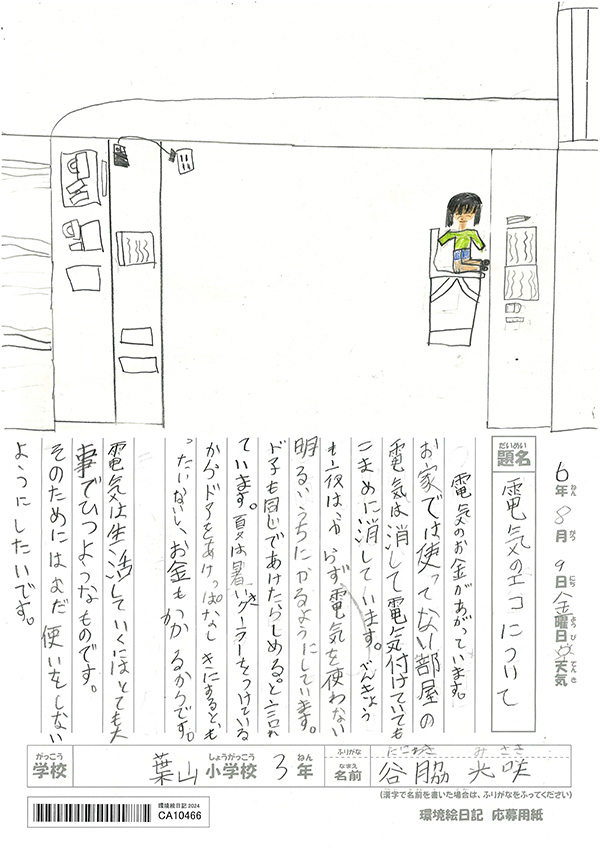 6年8月9日金曜日 天気
ねん がつ にち ようび てんき
だいめい
題名
電気のエコについて
電気のお金があがっています。
お家では使ってない部屋の
電気は消して電気付けていても
こまめに消しています。べんきょう
も夜はやらず、電気を使わない
明るいうちにやるようにしています。
ドアも同じであけたらしめる。と言われ
ています。夏は暑いクーラーをつけている
からドアをあけっぱなしきにするとも
ったいないし、お金もかかるからです。
電気は生活していくにはとても大
事でひつようなものです。
そのためにはむだ使いをしない
ようにしたいです。
がっこう しょうがっこう ねん
学校 葉山小学校 3年
ふりがな たにわき みささ
なまえ
名前 谷脇 光咲
(漢字で名前を書いた場合は、ふりがなをふってください)
環境絵日記 2024
CA10466
環境絵日記 応募用紙